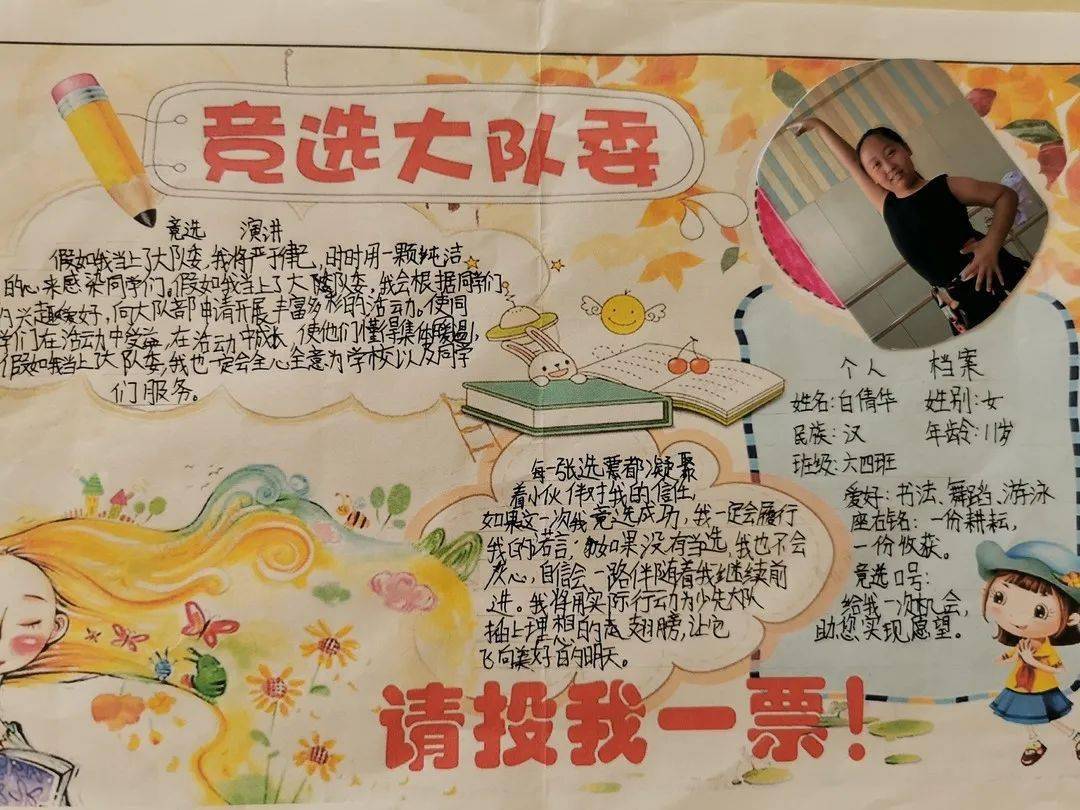 竞选大队委
竞选 演讲
假如我当上了大队委,我将严于律己,时时用一颗纯洁
的心来感染同学们,假如我当上了大队委,我会根据同学们
兴趣爱好,向大队部申请开展丰富多彩的活动。使同
学们在活动中受益,在活动中成长,使他们懂得集体
假如我当上了大队委,我也一定会全心全意为学校以及同学
们服务。
每一张选票都凝聚
着小伙伴对我的信任,
如果这一次我竞选成功,我一定会履行
我的诺言;如果没有当选,我也不会
灰心,自信会一路伴随着我继续前
进。我将用实际行动为少先大队
插上理想的翅膀,让它
飞向美好的明天。
个人 档案
姓名:白倩华 性别:女
民族:汉 年龄:11岁
班级:六四班
爱好:书法、舞蹈、游泳
座右铭:一份耕耘,
一份收获。
竞选口号:
给我一次机会,
助您实现愿望。
请投我一票!